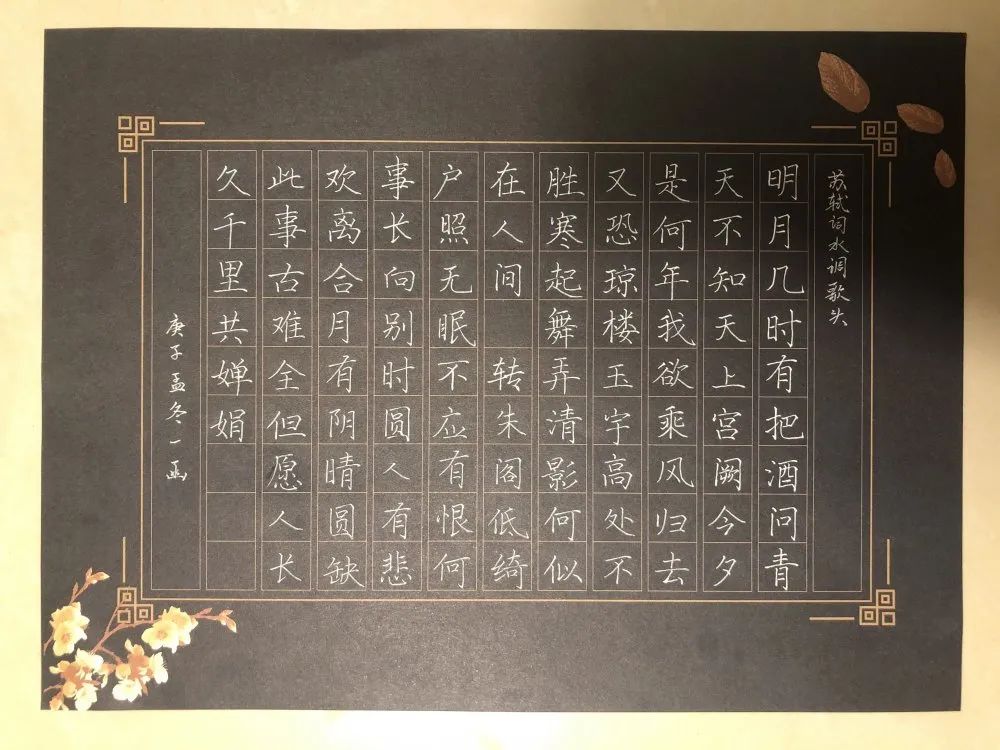 苏轼词水调歌头
明月几时有把酒问青
天不知天上宫阙今夕
是何年我欲乘风归去
又恐琼楼玉宇高处不
胜寒起舞弄清影何似
在人间 转朱阁低绮
户照无眠不应有恨何
事长向别时圆人有悲
欢离合月有阴晴圆缺
此事古难全但愿人长
久千里共婵娟
庚子孟冬一函